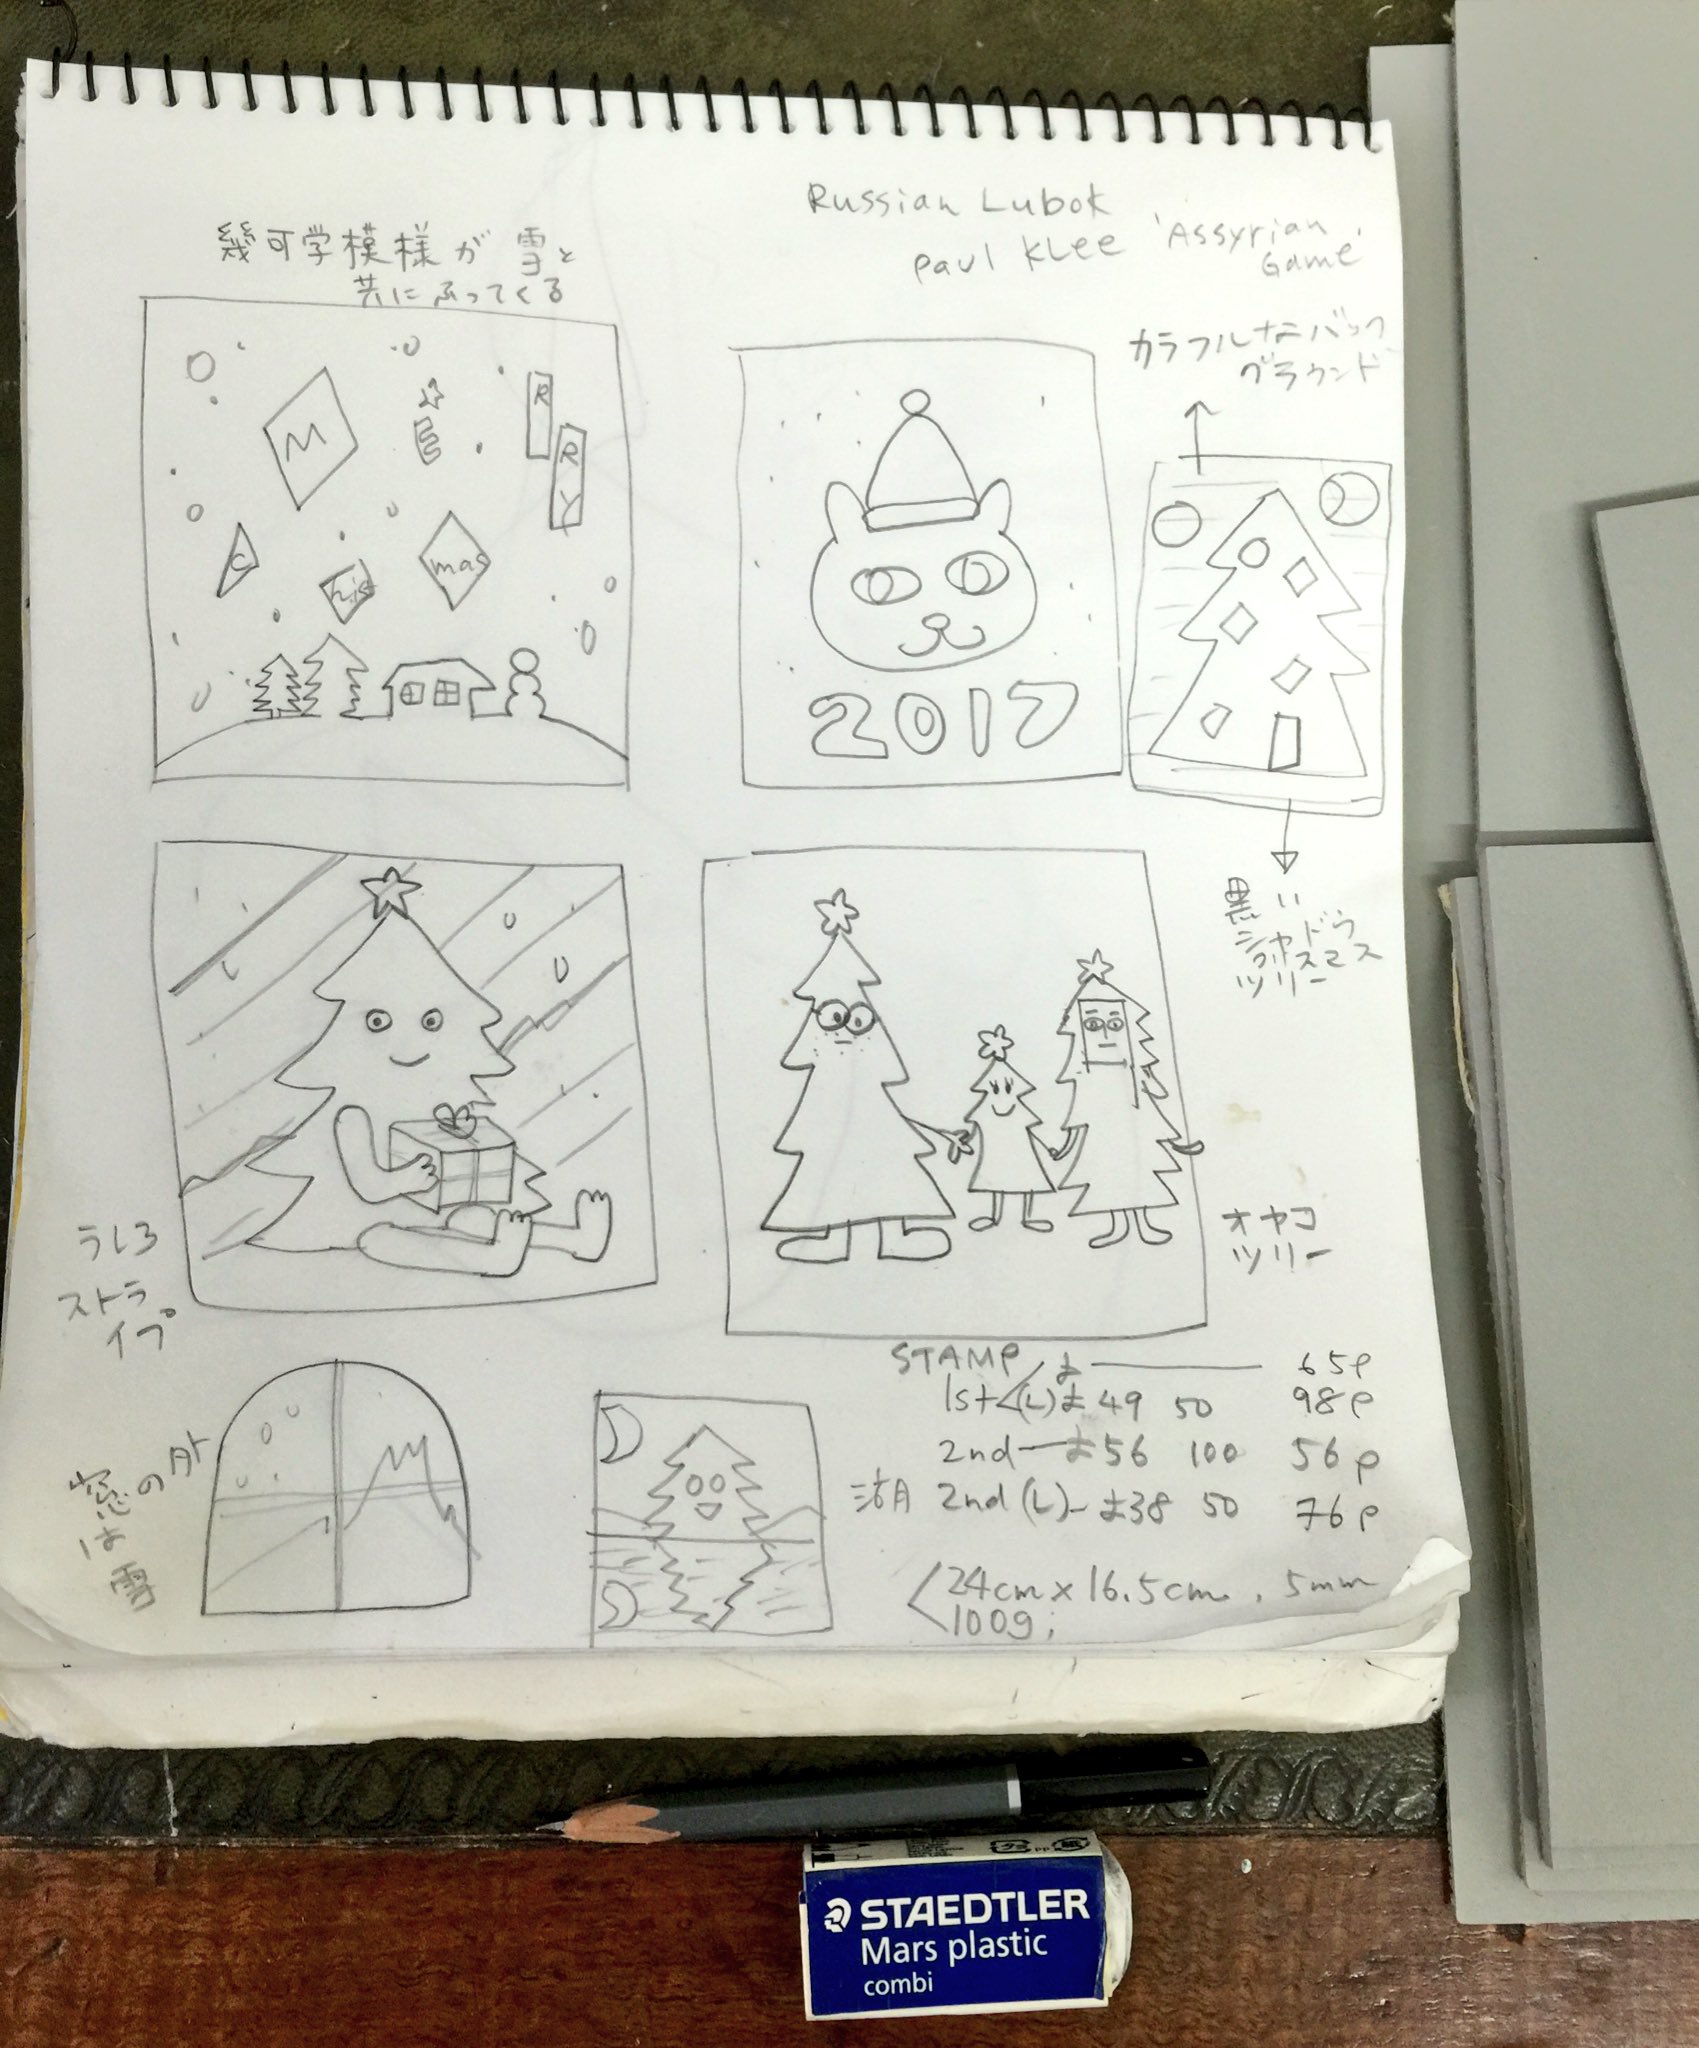 Russian Lubok
Paul Klee 'Assyrian
Game'
幾可学模様が雪と
共にふってくる
カラフルなバック
グラウンド
M
E
R
R
Y
C
his
mas
2017
黒い
シャドウ
クリスマス
ツリー
うしろ
ストラ
イプ
オヤコ
ツリー
窓の外
は雪
STAMP 65p
1st (L) 49 50 98p
2nd 56 100 56p
2nd (L) 38 50 76p
24cm x 16.5cm, 5mm
100g;
STAEDTLER
Mars plastic
combi